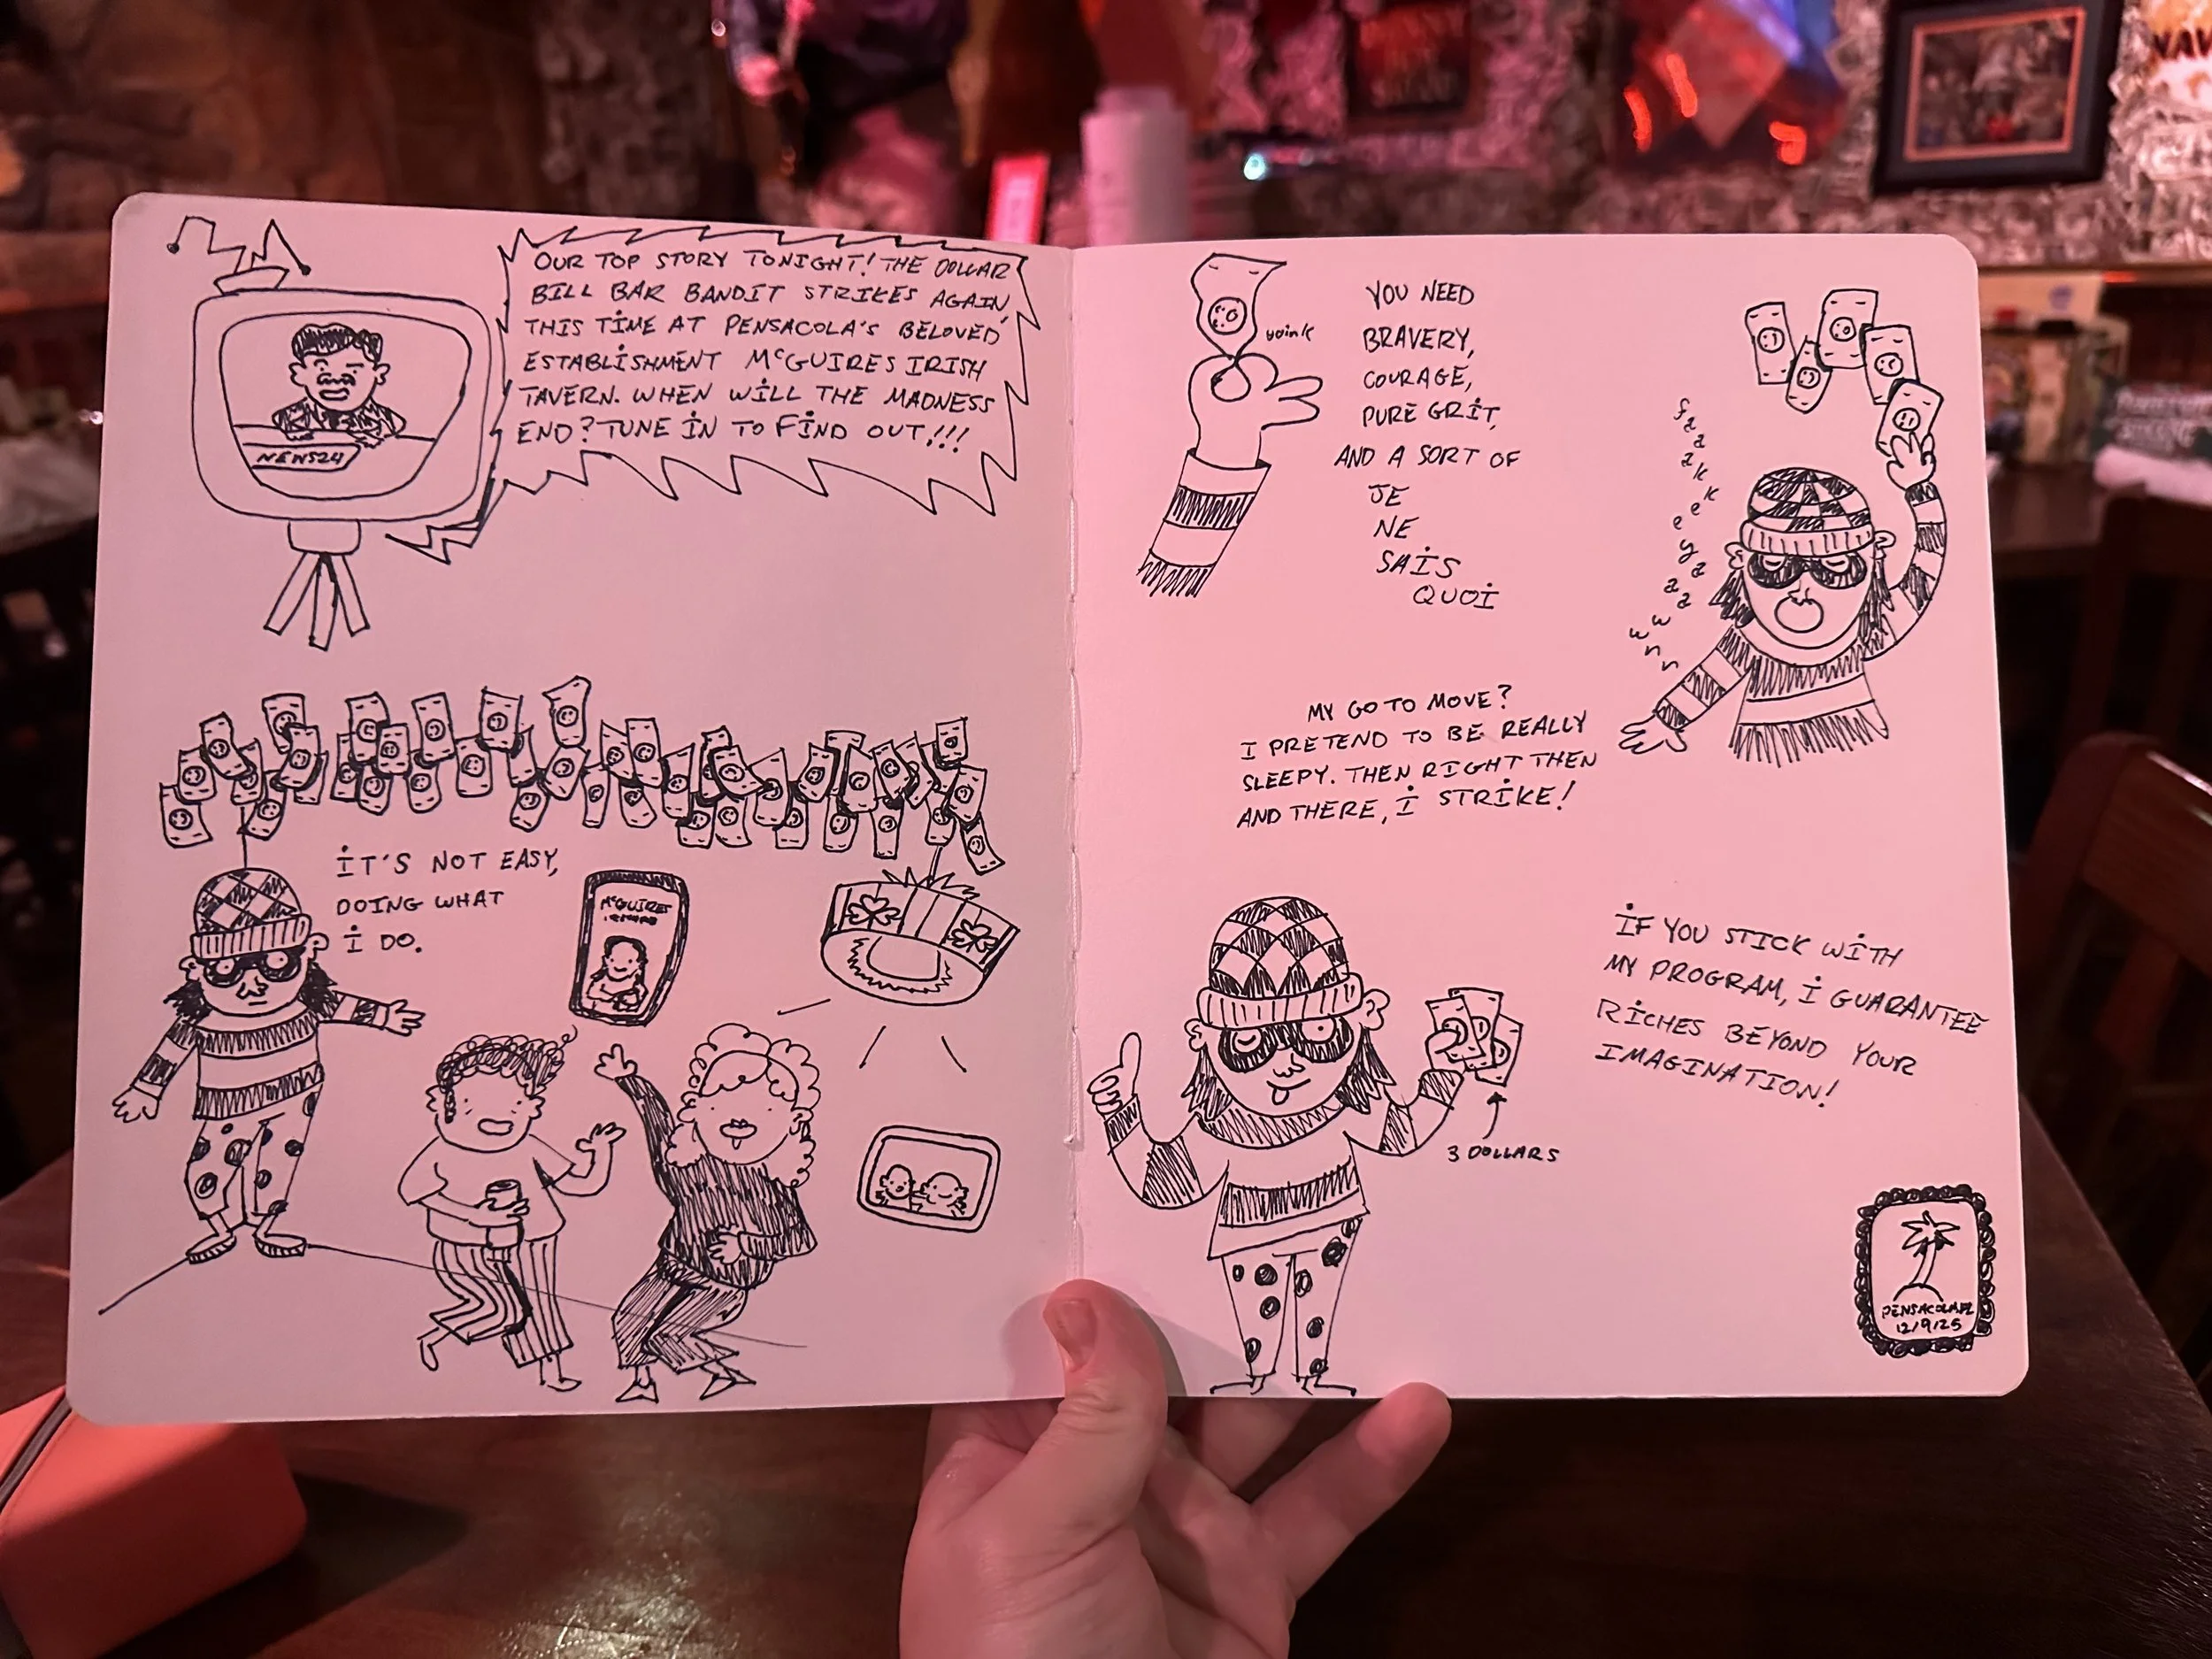 OUR TOP STORY TONIGHT! THE DOLLAR
BILL BAR BANDIT STRIKES AGAIN,
THIS TIME AT PENSACOLA'S BELOVED
ESTABLISHMENT McGUIRES IRISH
TAVERN. WHEN WILL THE MADNESS
END? TUNE IN TO FIND OUT!!!
NEWS24
IT'S NOT EASY,
DOING WHAT
I DO.
McGUIRES
yoink
YOU NEED
BRAVERY,
COURAGE,
PURE GRIT,
AND A SORT OF
JE
NE
SAIS
QUOI
faaakkeyaaawwnn
MY GO TO MOVE?
I PRETEND TO BE REALLY
SLEEPY. THEN RIGHT THEN
AND THERE, I STRIKE!
IF YOU STICK WITH
MY PROGRAM, I GUARANTEE
RICHES BEYOND YOUR
IMAGINATION!
3 DOLLARS
PENSACOLA, FL
12/9/25